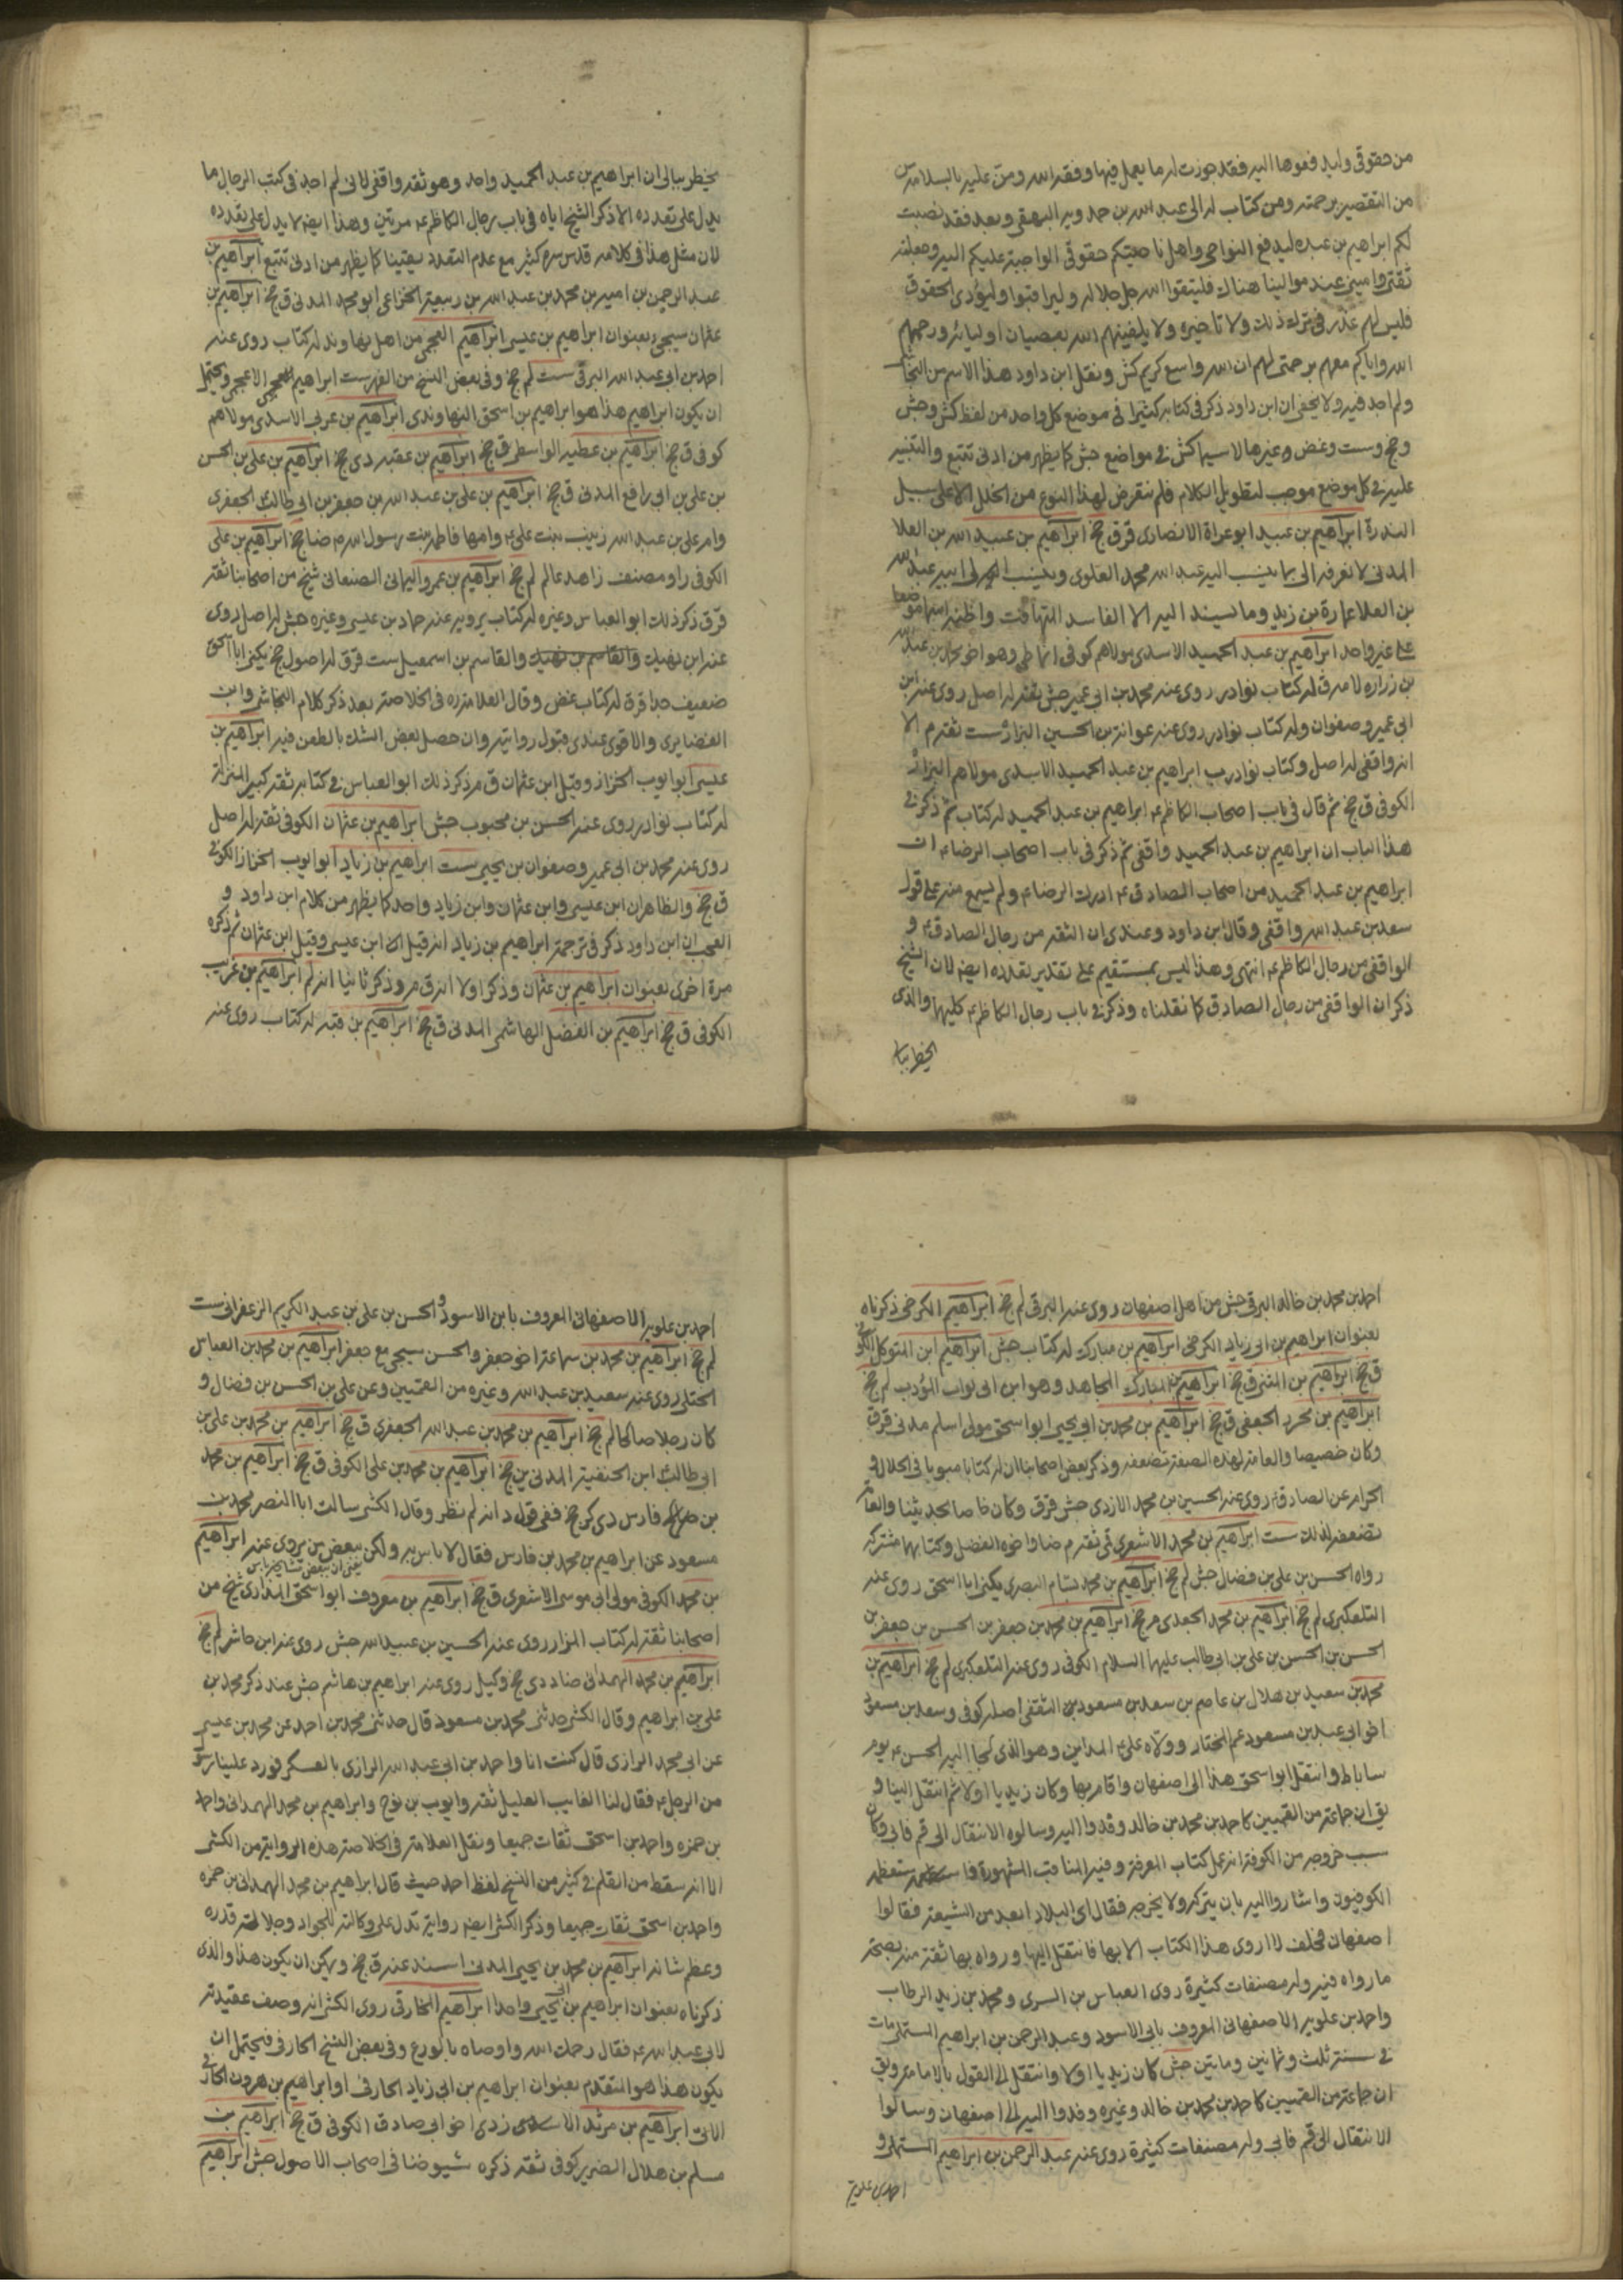 من حقوقي وليدفعوها اليه فقد جوزت له ما يعمل فيها وفقه الله ومن عليه بالسلامة
من التقصير برحمته ومن كتاب له الى عبد الله بن حمدويه البيهقي وبعد فقد نصبت
لكم ابراهيم بن عبده ليدفع النواحي واهل ناحيتكم حقوقي الواجبة عليكم اليه وجعلته
ثقتي واميني عند موالينا هناك فليتقوا الله جل جلاله وليراقبوا وليؤدى الحقوق
فليس لهم عذر في ترك ذلك ولا تاخيره ولا يلقينهم الله بعصيان اوليائه ورحمهم
الله واياكم معهم برحمتي لهم ان الله واسع كريم كش ونقل ابن داود هذا الاسم من النجاشي
ولم اجد فيه ولا يخفى ان ابن داود ذكر في كتابه كثيرا في موضع كل واحد من لفظ كش وجش
وجخ وست وغض وغيرها لا سيما كش في مواضع جش كما يظهر من ادنى تتبع والتنبيه
عليه في كل موضع موجب لتطويل الكلام فلم نتعرض لهذا النوع من الخلل الا على سبيل
الندرة ابراهيم بن عبيد ابو عراة الانصاري قر ق جخ ابراهيم بن عبيد الله بن العلا
المدني لا نعرفه الا بما ينسب اليه عبد الله محمد العلوي وينسب الى ابيه عبد الله
بن العلا عمارة بن زيد وما يسند اليه الا الفاسد المتهافت واظنه اسما موضوعا
على غير واحد ابراهيم بن عبد الحميد الاسدي مولاهم كوفي انماطي وهو اخو محمد بن عبد الله
بن زرارة لامه ق له كتاب نوادر روى عنه محمد بن ابي عمير جش ثقة له اصل روى عنه ابن
ابي عمير وصفوان وله كتاب نوادر روى عنه عوانة بن الحسين البزاز ست ثقة م الا
انه واقفي له اصل وكتاب نوادر ب ابراهيم بن عبد الحميد الاسدي مولاهم البزاز
الكوفي ق جخ ثم قال في باب اصحاب الكاظم ع ابراهيم بن عبد الحميد له كتاب ثم ذكر في
هذا الباب ان ابراهيم بن عبد الحميد واقفي ثم ذكر في باب اصحاب الرضا ع ان
ابراهيم بن عبد الحميد من اصحاب الصادق ع ادرك الرضا ع ولم يسمع منه على قول
سعد بن عبد الله واقفي وقال ابن داود وعندي ان الثقة من رجال الصادق ع و
الواقفي من رجال الكاظم ع انتهى وهذا ليس بمستقيم على تقدير تعدده ايضا لان الشيخ
ذكر ان الواقفي من رجال الصادق كما نقلناه وذكر في باب رجال الكاظم ع كليهما والذي
يخطر ببالي
يخطر ببالي ان ابراهيم بن عبد الحميد واحد وهو ثقة واقفي لاني لم اجد في كتب الرجال ما
يدل على تعدده الا ذكر الشيخ اياه في باب رجال الكاظم ع مرتين وهذا ايضا لا يدل على تعدده
لان مثل هذا في كلامه قدس سره كثير مع عدم التعدد يقينا كما يظهر من ادنى تتبع ابراهيم بن
عبد الرحمن بن امية بن محمد بن عبد الله بن ربيعة الخزاعي ابو محمد المدني ق جخ ابراهيم بن
عثمان سيجيء بعنوان ابراهيم بن عيسى ابراهيم العجمي من اهل نهاوند له كتاب روى عنه
احمد بن ابي عبد الله البرقي ست لم جخ وفي بعض النسخ من الفهرست ابراهيم الاعجمي ويحتمل
ان يكون ابراهيم هذا هو ابراهيم بن اسحق النهاوندي ابراهيم بن عربي الاسدي مولاهم
كوفي ق جخ ابراهيم بن عطية الواسطي ق جخ ابراهيم بن عقبة دي جخ ابراهيم بن علي بن الحسن
بن علي بن ابي رافع المدني ق جخ ابراهيم بن علي بن عبد الله بن جعفر بن ابي طالب الجعفري
وام علي بن عبد الله زينب بنت علي ع وامها فاطمة بنت رسول الله م ضا جخ ابراهيم بن علي
الكوفي راو مصنف زاهد عالم لم جخ ابراهيم بن عمرو اليماني الصنعاني شيخ من اصحابنا ثقة
قر ق ذكر ذلك ابو العباس وغيره له كتاب يرويه عنه حماد بن عيسى وغيره جش له اصل روى
عنه ابن نهيك والقاسم بن نهيك والقاسم بن اسمعيل ست قر ق له اصول جخ يكنى ابا اسحق
ضعيف جدا قر ق له كتاب غض وقال العلامة ره في الخلاصة بعد ذكر كلام النجاشي وابن
الغضايري والاقوى عندي قبول روايته وان حصل بعض الشك بالطعن فيه ابراهيم بن
عيسى ابو ايوب الخزاز وقيل ابن عثمان ق م ذكر ذلك ابو العباس في كتابه ثقة كبير المنزلة
له كتاب نوادر روى عنه الحسن بن محبوب جش ابراهيم بن عثمان الكوفي ثقة له اصل
روى عنه محمد بن ابي عمير وصفوان بن يحيى ست ابراهيم بن زياد ابو ايوب الخزاز الكوفي
ق جخ والظاهر ان ابن عيسى وابن عثمان وابن زياد واحد كما يظهر من كلام ابن داود و
العجب ان ابن داود ذكر في ترجمة ابراهيم بن زياد انه قيل انه ابن عيسى وقيل ابن عثمان ثم ذكره
مرة اخرى بعنوان ابراهيم بن عثمان وذكر اولا انه ق م وذكر ثانيا انه لم ابراهيم بن غريب
الكوفي ق جخ ابراهيم بن الفضل الهاشمي المدني ق جخ ابراهيم بن قتيبة له كتاب روى عنه
احمد بن محمد بن خالد البرقي جش من اهل اصفهان روى عنه البرقي لم جخ ابراهيم الكرخي ذكرناه
بعنوان ابراهيم بن ابي زياد الكرخي ابراهيم بن مبارك له كتاب جش ابراهيم ابن المتوكل الكوفي
ق جخ ابراهيم بن المثنى ق جخ ابراهيم بن المبارك المجاهد وهو ابن ابي ثواب المؤدب لم جخ
ابراهيم بن محرز الجعفي ق جخ ابراهيم بن محمد بن ابي يحيى ابو اسحق مولى اسلم مدني قر ق
وكان خصيصا والعامة لهذه الصفة تضعفه وذكر بعض اصحابنا ان له كتابا مبوبا في الحلال و
الحرام عن الصادق ع روى عنه الحسين بن محمد الازدي جش قر ق وكان خاصا بحديثنا والعامة
تضعفه لذلك ست ابراهيم بن محمد الاشعري قمي ثقة م ضا واخوه الفضل وكتابهما مشترك
رواه الحسن بن علي بن فضال جش لم جخ ابراهيم بن محمد بسام البصري يكنى ابا اسحق روى عنه
التلعكبري لم جخ ابراهيم بن محمد الجعدي م جخ ابراهيم بن محمد بن جعفر بن الحسن بن جعفر بن
الحسن بن الحسن بن علي بن ابي طالب عليهما السلام الكوفي روى عنه التلعكبري لم جخ ابراهيم بن
محمد بن سعيد بن هلال بن عاصم بن سعد بن مسعود بن الثقفي اصله كوفي وسعد بن مسعود
اخو ابي عبيد بن مسعود عم المختار وولاه علي ع المداين وهو الذي لجا اليه الحسن ع يوم
ساباط وانتقل ابو اسحق هذا الى اصفهان واقام بها وكان زيديا اولا ثم انتقل الينا و
يق ان جماعة من القميين كاحمد بن محمد بن خالد وفدوا اليه وسالوه الانتقال الى قم فابى وكان
سبب خروجه من الكوفة انه عمل كتاب المعرفة وفيه المناقب المشهورة فاستعظمه
الكوفيون واشاروا اليه بان يتركه ولا يخرجه فقال اي البلاد ابعد من الشيعة فقالوا
اصفهان فحلف لا اروى هذا الكتاب الا بها فانتقل اليها ورواه بها ثقة منه بصحة
ما رواه فيه وله مصنفات كثيرة روى العباس بن السري ومحمد بن زيد الرطاب
واحمد بن علويه الاصفهاني المعروف بابي الاسود وعبد الرحمن بن ابراهيم المستملي مات
في سنة ثلث وثمانين ومايتين جش كان زيديا اولا وانتقل الى القول بالامامة ويق
ان جماعة من القميين كاحمد بن محمد بن خالد وغيره وفدوا اليه الى اصفهان وسالوا
الانتقال الى قم فابى وله مصنفات كثيرة روى عنه عبد الرحمن بن ابراهيم المستملي و
احمد بن علوية
احمد بن علويه الاصفهاني المعروف بابن الاسود والحسن بن علي بن عبد الكريم الزعفراني ست
لم جخ ابراهيم بن محمد بن سماعة اخو جعفر والحسن سيجيء مع جعفر ابراهيم بن محمد بن العباس
الختلي روى عنه سعيد بن عبد الله وغيره من القميين وعن علي بن الحسن بن فضال و
كان رجلا صالحا لم جخ ابراهيم بن محمد بن عبد الله الجعفري ق جخ ابراهيم بن محمد بن علي بن
ابي طالب ابن الحنفية المدني ين جخ ابراهيم بن محمد بن علي الكوفي ق جخ ابراهيم بن محمد
بن فارس دي كر جخ ففي قول د انه لم نظر وقال الكشي سالت ابا النصر محمد بن
مسعود عن ابراهيم بن محمد بن فارس فقال لا باس به ولكن بعض من يروى عنه ابراهيم
بن محمد الكوفي مولى ابي موسى الاشعري ق جخ ابراهيم بن معروف ابو اسحق المذاري شيخ من
اصحابنا ثقة له كتاب المزار روى عنه الحسين بن عبيد الله جش روى عنه ابن حاشر لم جخ
ابراهيم بن محمد الهمداني ضا د دي جخ وكيل روى عنه ابراهيم بن هاشم جش عند ذكر محمد بن
علي بن ابراهيم وقال الكشي حدثني محمد بن مسعود قال حدثني محمد بن احمد عن محمد بن عيسى
عن ابي محمد الرازي قال كنت انا واحمد بن ابي عبد الله الرازي بالعسكر فورد علينا رسول
من الرجل ع فقال لنا الغايب العليل ثقة وايوب بن نوح وابراهيم بن محمد الهمداني واحمد
بن حمزه واحمد بن اسحق ثقات جميعا ونقل العلامة في الخلاصة هذه الرواية من الكشي
الا انه سقط من القلم في كثير من النسخ لفظ احمد حيث قال ابراهيم بن محمد الهمداني بن حمزه
واحمد بن اسحق ثقات جميعا وذكر الكشي ايضا رواية تدل على وكالته للجواد وجلالة قدره
وعظم شانه ابراهيم بن محمد بن يحيى المدني اسند عنه ق جخ ويمكن ان يكون هذا والذي
ذكرناه بعنوان ابراهيم بن ابي يحيى واحدا ابراهيم المخارقي روى الكشي انه وصف عقيدته
لابي عبد الله ع فقال رحمك الله واوصاه بالورع وفي بعض النسخ الحارفي فيحتمل ان
يكون هذا هو المتقدم بعنوان ابراهيم بن ابي زياد الحارفي او ابراهيم بن هرون الحارفي
الاتي ابراهيم بن مرثد الازدي اخو ابي صادق الكوفي ق جخ ابراهيم بن
مسلم بن هلال الضرير كوفي ثقة ذكره شيوخنا في اصحاب الاصول جش ابراهيم